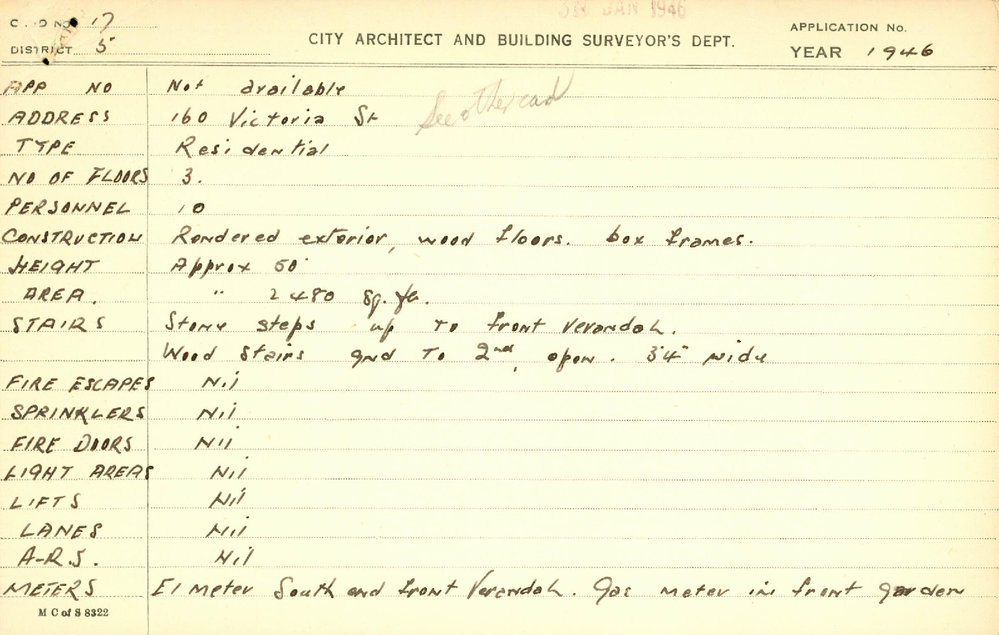 31 JAN 1946
CARD NO. 17
DISTRICT 5
CITY ARCHITECT AND BUILDING SURVEYOR'S DEPT.
APPLICATION No.
YEAR 1946
APP NO Not available
See other card
ADDRESS 160 Victoria St
TYPE Residential
NO OF FLOORS 3.
PERSONNEL 10
CONSTRUCTION Rendered exterior, wood floors. box frames.
HEIGHT Approx 50'
AREA. " 2480 Sq. ft.
STAIRS Stone steps up to front Verandah.
Wood Stairs gnd to 2nd, open. 3'4" wide
FIRE ESCAPES Nil
SPRINKLERS Nil
FIRE DOORS Nil
LIGHT AREAS Nil
LIFTS Nil
LANES Nil
A-R.S. Nil
METERS El meter South end front Verandah. Gas meter in front garden
M C of S 8322